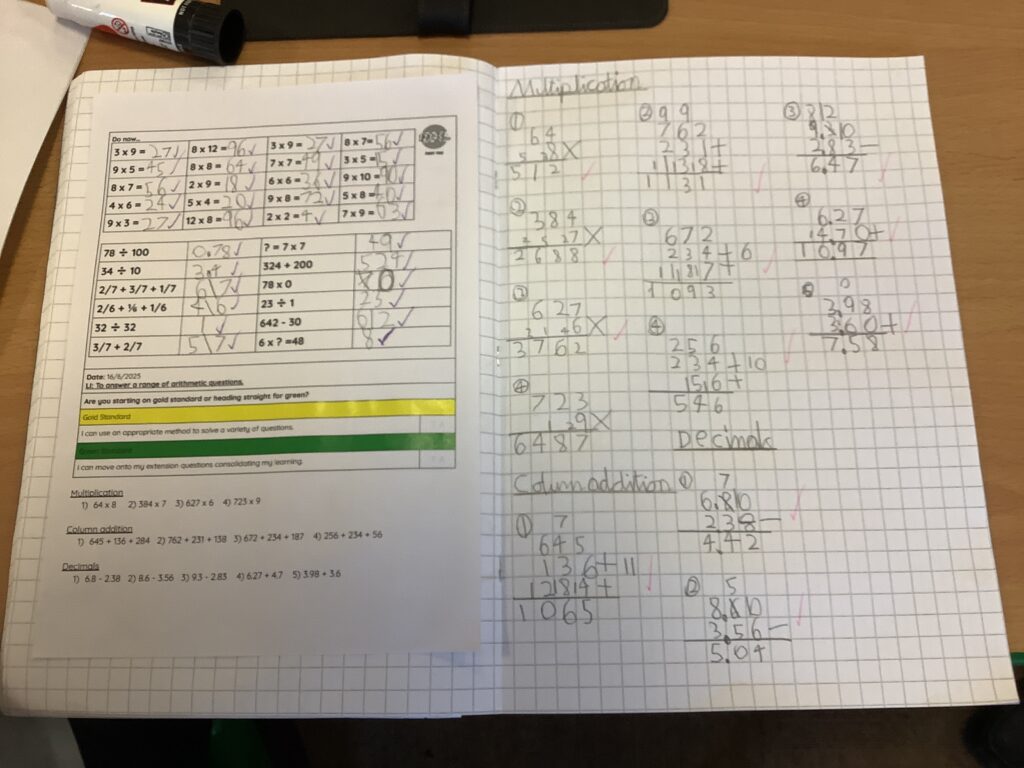 Do now...
3 x 9 = 27 8 x 12 = 96 3 x 9 = 27 8 x 7 = 56
9 x 5 = 45 8 x 8 = 64 7 x 7 = 49 3 x 5 = 15
8 x 7 = 56 2 x 9 = 18 6 x 6 = 36 9 x 10 = 90
4 x 6 = 24 5 x 4 = 20 9 x 8 = 72 5 x 8 = 40
9 x 3 = 27 12 x 8 = 96 2 x 2 = 4 7 x 9 = 63
78 ÷ 100 0.78 ? = 7 x 7 49
34 ÷ 10 3.4 324 + 200 524
2/7 + 3/7 + 1/7 6\7 78 x 0 0
2/6 + ⅙ + 1/6 4\6 23 ÷ 1 23
32 ÷ 32 1 642 - 30 612
3/7 + 2/7 5\7 6 x ? =48 8
Date: 16/6/2025
LI: To answer a range of arithmetic questions.
Are you starting on gold standard or heading straight for green?
Gold Standard
I can use an appropriate method to solve a variety of questions.
Green Standard
I can move onto my extension questions consolidating my learning.
Multiplication
1) 64 x 8 2) 384 x 7 3) 627 x 6 4) 723 x 9
Column addition
1) 645 + 136 + 284 2) 762 + 231 + 138 3) 672 + 234 + 187 4) 256 + 234 + 56
Decimals
1) 6.8 - 2.38 2) 8.6 - 3.56 3) 9.3 - 2.83 4) 6.27 + 4.7 5) 3.98 + 3.6
Multiplication
①
64
8x
512
②
384
7x
2688
③
627
6x
3762
④
723
9x
6487
Column addition
①
7
645
136+11
284+
1065
②
99
762
231+
138+
1131
672
234+6
187+
1093
④
256
234+10
56+
546
Decimals
①
7
6.80
2.38-
4.42
②
5
8.60
3.56-
5.04
③
82
9.30
2.83-
6.47
④
6.27
4.70+
10.97
3.98
3.60+
7.58